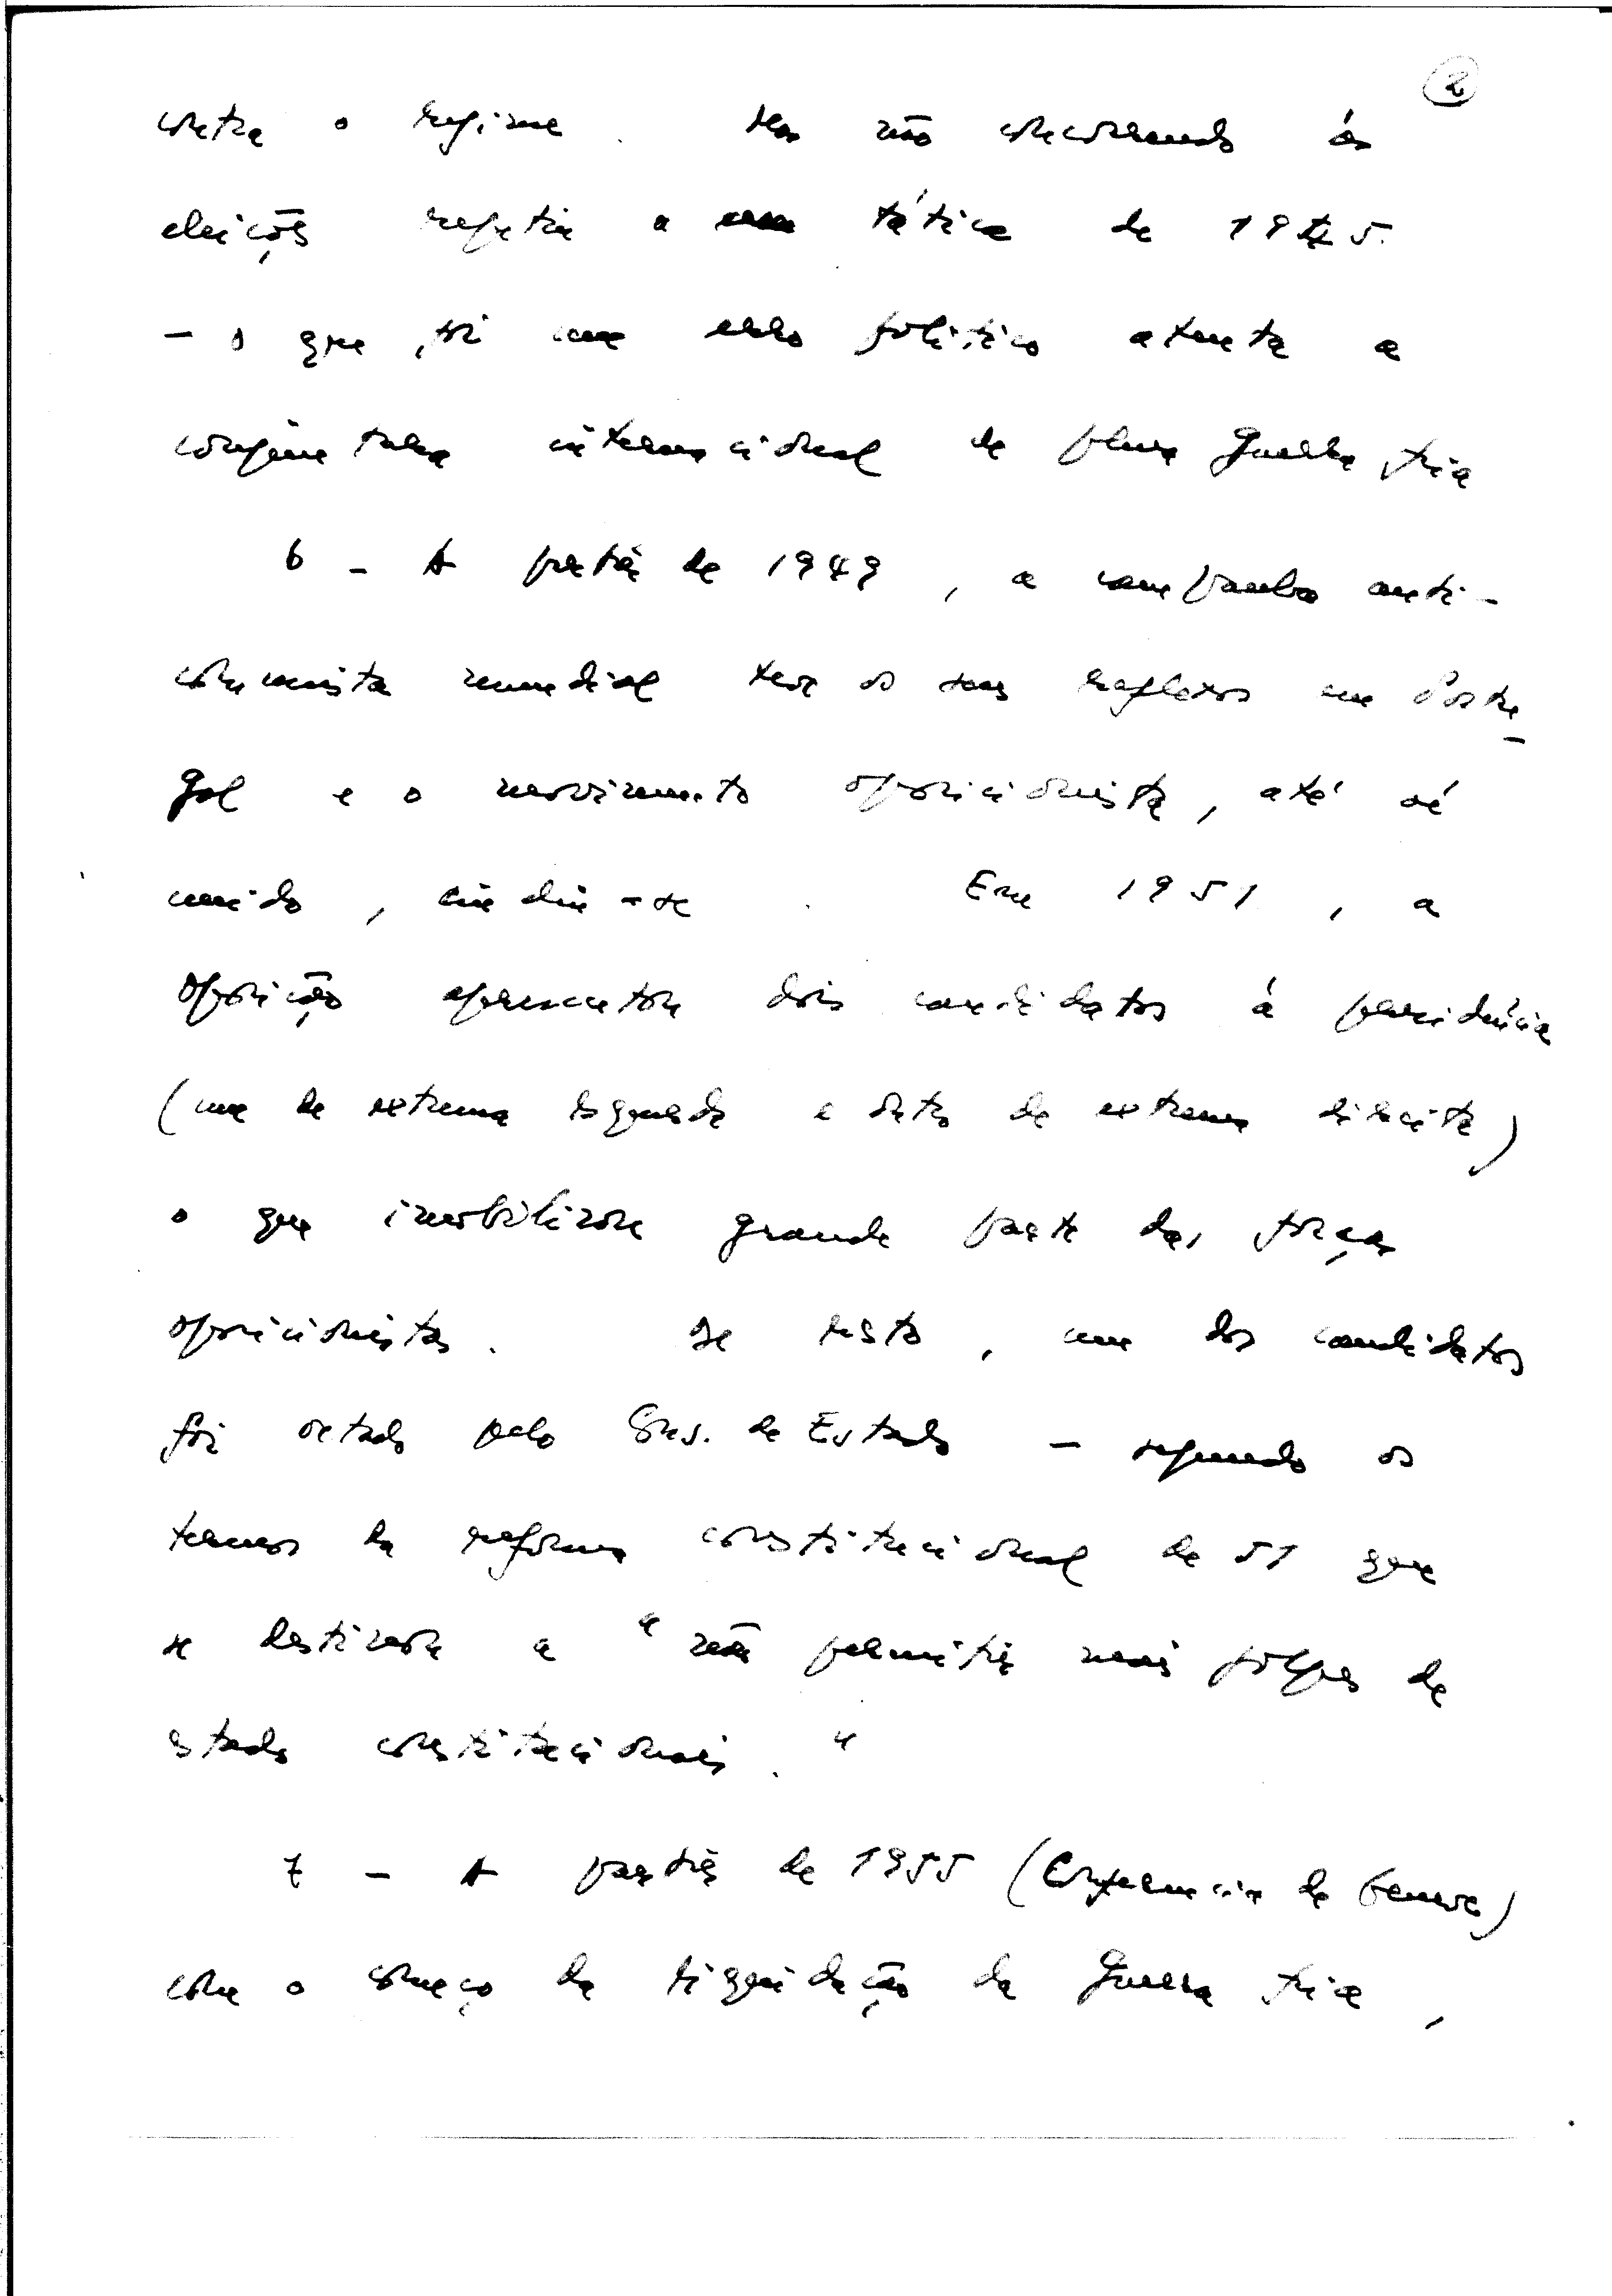 2
contra o regime. Mas não concorrendo às
eleições repetia a tática de 1945.
- o que foi um erro político atenta a
conjuntura internacional de plena Guerra fria
6 - A partir de 1949, a campanha anti-
comunista mundial teve os seus reflexos em Portu-
gal e o movimento oposicionista, até aí
unido, cindiu-se. Em 1951, a
oposição apresentou dois candidatos à presidência
(um de extrema esquerda e outro de extrema direita)
o que imobilizou grande parte das forças
oposicionistas. De resto, um dos candidatos
foi vetado pelo Cons. de Estado - segundo os
termos da reforma constitucional de 51 que
se destinava a "não permitir mais golpes de
estado constitucionais."
7 - A partir de 1955 (Conferencia de Geneve)
com o começo da liquidação da Guerra fria,